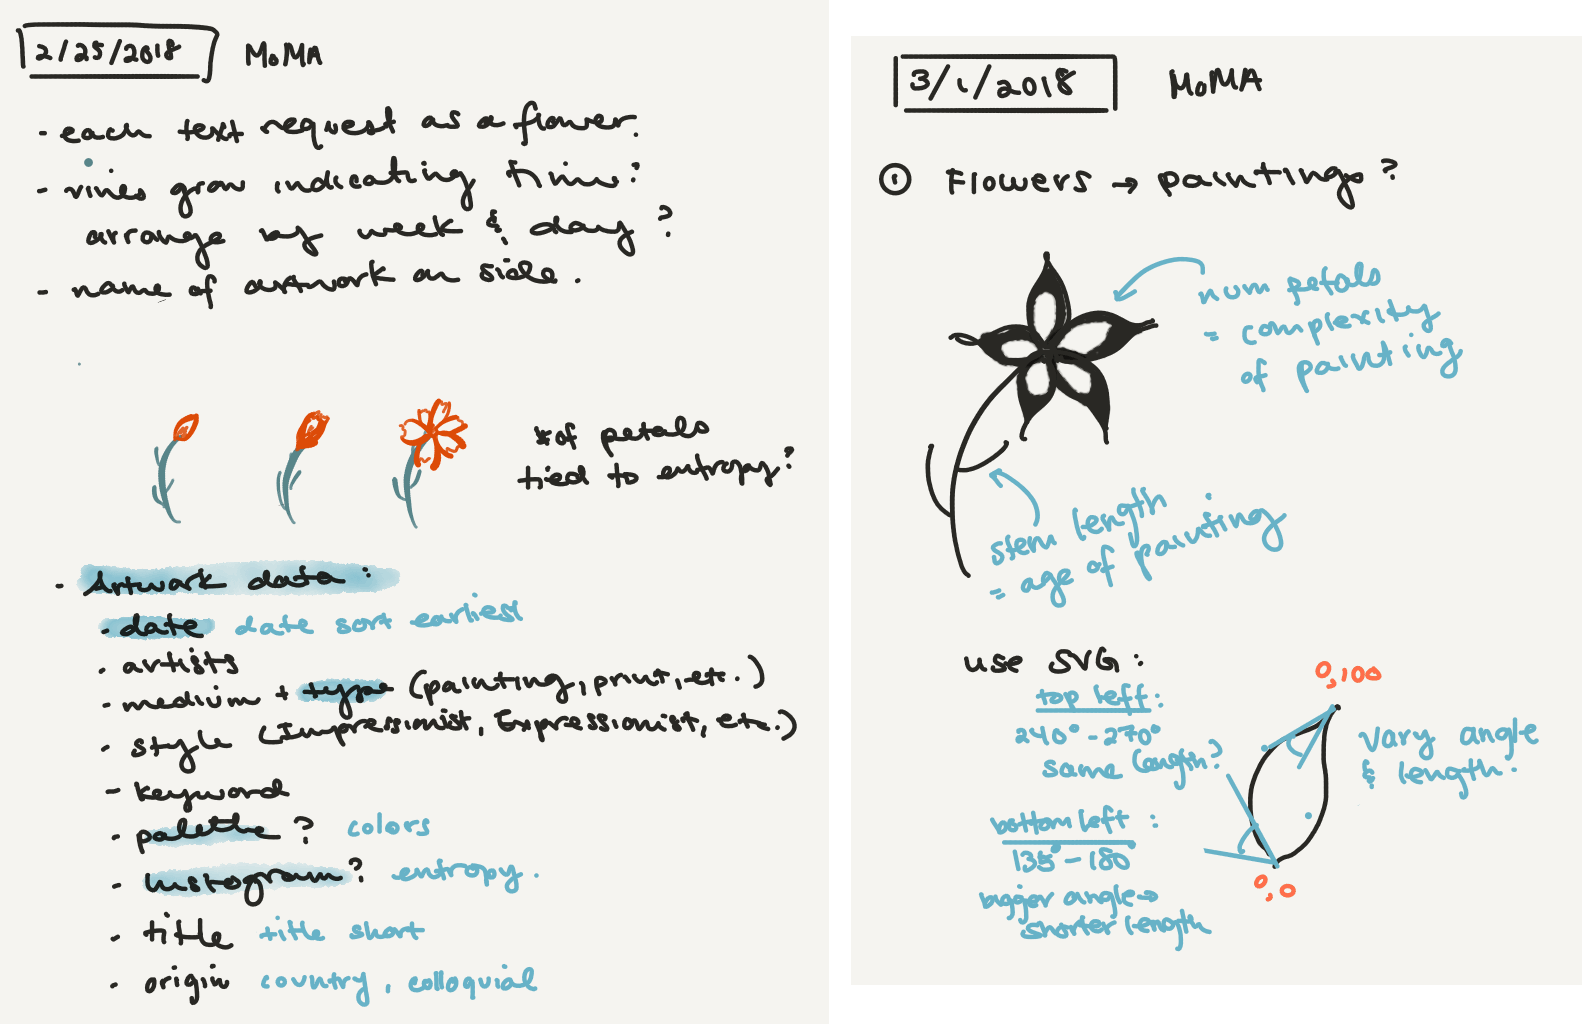 2/25/2018 MoMA
- each text request as a flower.
- vines grow indicating time?
arrange by week & day?
- name of artwork on side.
# of petals
tied to entropy?
- Artwork data:
- date date sort earliest
- artists
- medium + type (painting, print, etc.)
- style (Impressionist, Expressionist, etc.)
- keyword
- palette? colors
- histogram? entropy.
- title title short
- origin country, colloquial
3/1/2018 MoMA
① Flowers → paintings?
num petals
= complexity
of painting
stem length
= age of painting
use SVG:
top left:
240° - 270°
same length?
bottom left:
135° - 180°
bigger angle →
shorter length
0,100
vary angle
& length.
0,0